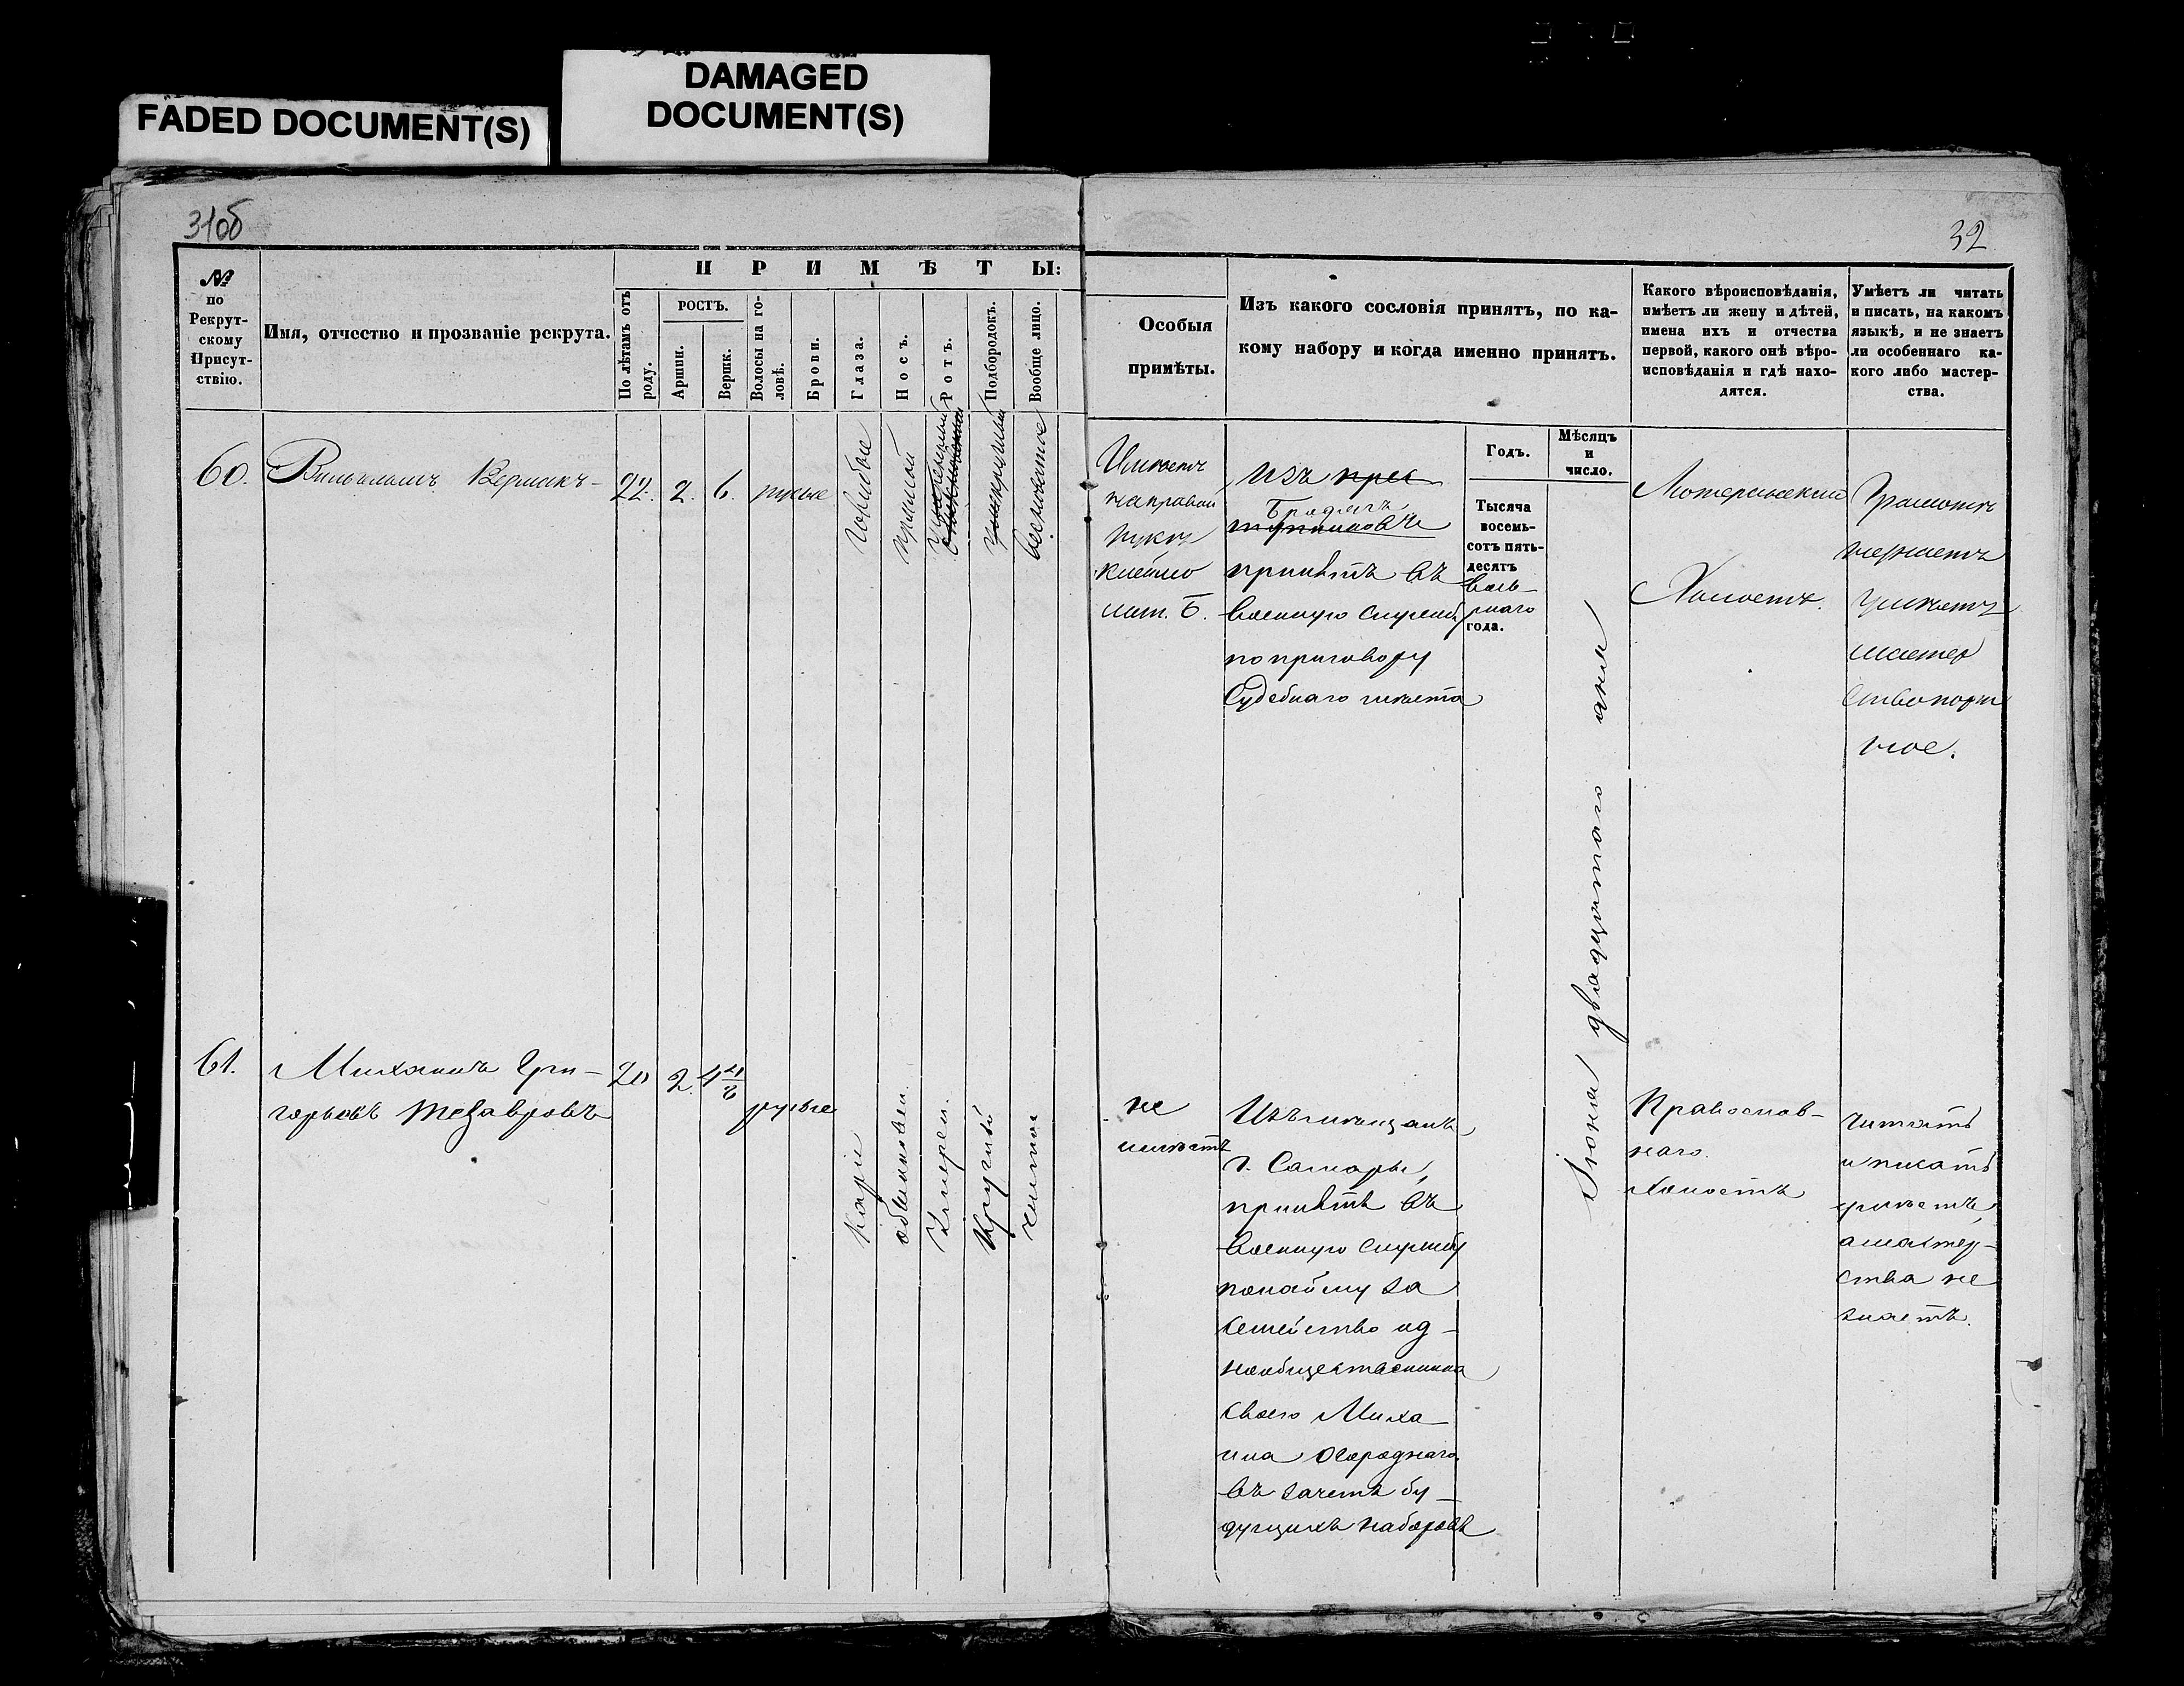 FADED DOCUMENT(S)
DAMAGED
DOCUMENT(S)
31об
32
№
по
Рекрут-
скому
Присут-
ствію.
Имя, отчество и прозваніе рекрута.
ПРИМѢТЫ:
По лѣтамъ отъ
роду.
РОСТЪ.
Аршин.
Вершк.
Волосы на го-
ловѣ.
Брови.
Глаза.
Носъ.
Ротъ.
Подбородокъ.
Вообще лицо.
Особыя
примѣты.
Изъ какого сословія принятъ, по ка-
кому набору и когда именно принятъ.
Какого вѣроисповѣданія,
имѣетъ ли жену и дѣтей,
имена ихъ и отчества
первой, какого онѣ вѣро-
исповѣданія и гдѣ нахо-
дятся.
Умѣетъ ли читать
и писать, на какомъ
языкѣ, и не знаетъ
ли особеннаго ка-
кого либо мастер-
ства.
Годъ.
Мѣсяцъ
и
число.
60.
Вильгельмъ Керманъ
22.
2.
6.
русые
голубые
прямой
умеренный
весноватое
Имѣетъ
на правой
руке
клеймо
лит. Б.
Изъ
Бродягъ
принятъ въ
военную службу
по приговору
Судебнаго места
Тысяча
восемь-
сотъ пять-
десятъ
вось-
маго
года.
Іюня двадцатаго дня
Лютеранский
Холостъ.
Грамоте
знаетъ
имѣетъ
мастер
ство порт
ное.
61.
Михаилъ Гри-
горьевъ Тезавровъ
20
2.
4 4/8
русые
карие
обыкновен.
умерен.
круглый
чистое
не
имѣетъ
Изъ мещанъ
г. Самары,
принятъ въ
военную службу
по найму за
семейство од-
нообщественника
своего Миха-
ила Огороднаго
въ зачетъ бу-
дущихъ наборовъ
Православ-
наго
Холостъ
читать
и писать
умѣетъ,
а мастер-
ства не
знаетъ.